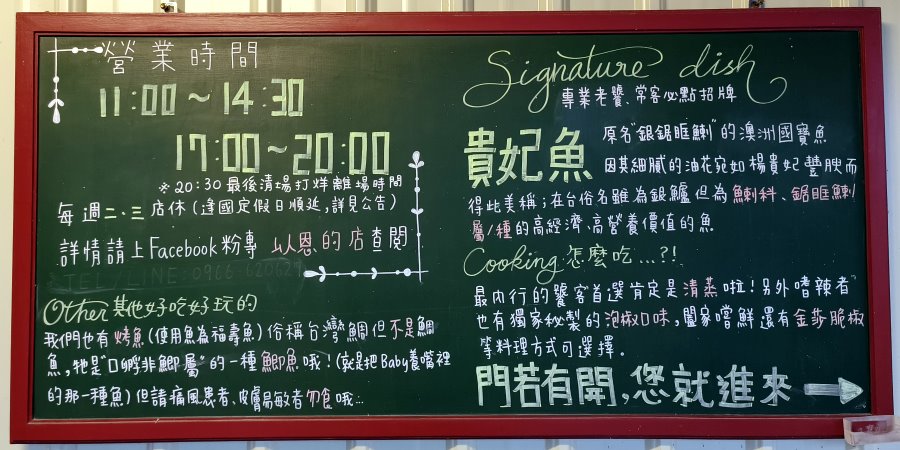 營業時間
11:00～14:30
17:00～20:00
※20:30 最後清場打烊離場時間
每週二.三店休(逢國定假日順延,詳見公告)
詳情請上Facebook粉專 以恩的店查閱
TEL/LINE:0906-620629
Other其他好吃好玩的
我們也有烤魚(使用魚為福壽魚)俗稱台灣鯛但不是鯛
魚,牠是"口孵非鯽屬"的一種鯽魚哦!(就是把Baby養嘴裡
的那一種魚)但請痛風患者、皮膚易敏者勿食哦...
Signature dish
專業老饕、常客必點招牌
貴妃魚 原名"銀鋸眶鯻"的澳洲國寶魚
因其細膩的油花宛如楊貴妃豐腴而
得此美稱;在台俗名雖為銀鱸但為鯻科、鋸眶鯻
屬/種的高經濟、高營養價值的魚
Cooking怎麼吃...?!
最內行的饕客首選肯定是清蒸啦!另外嗜辣者
也有獨家秘製的泡椒口味,闔家嚐鮮還有金莎脆椒
等料理方式可選擇。
門若有開,您就進來→